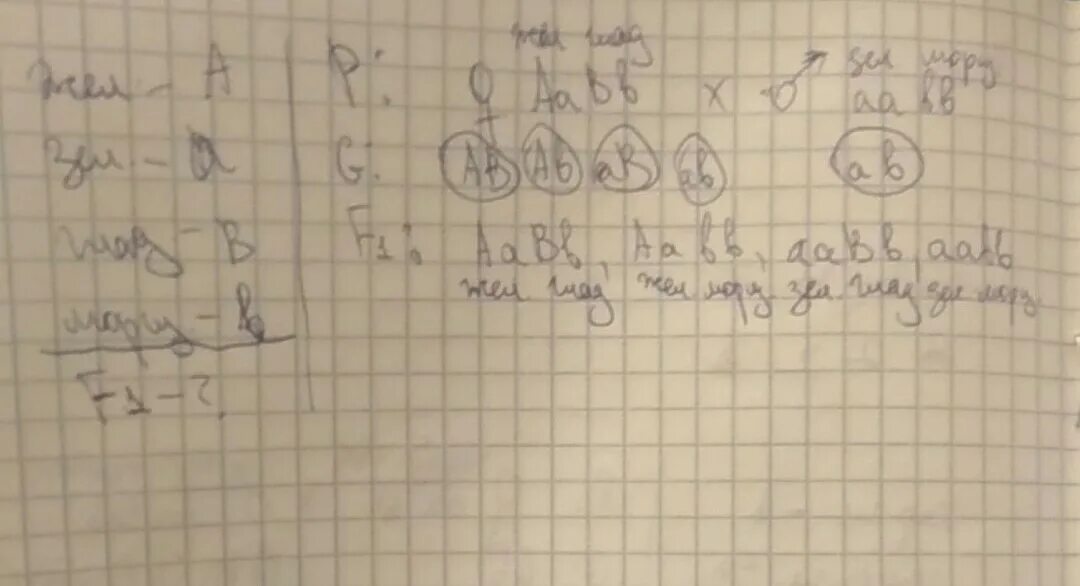 жел - A
зел - a
глад - B
морщ - b
F1 - ?
жел глад зел морщ
P: ♀ AaBb x ♂ aabb
G: AB Ab aB ab ab
F1: AaBb, Aabb, aaBb, aabb
жел глад жел морщ зел глад зел морщ